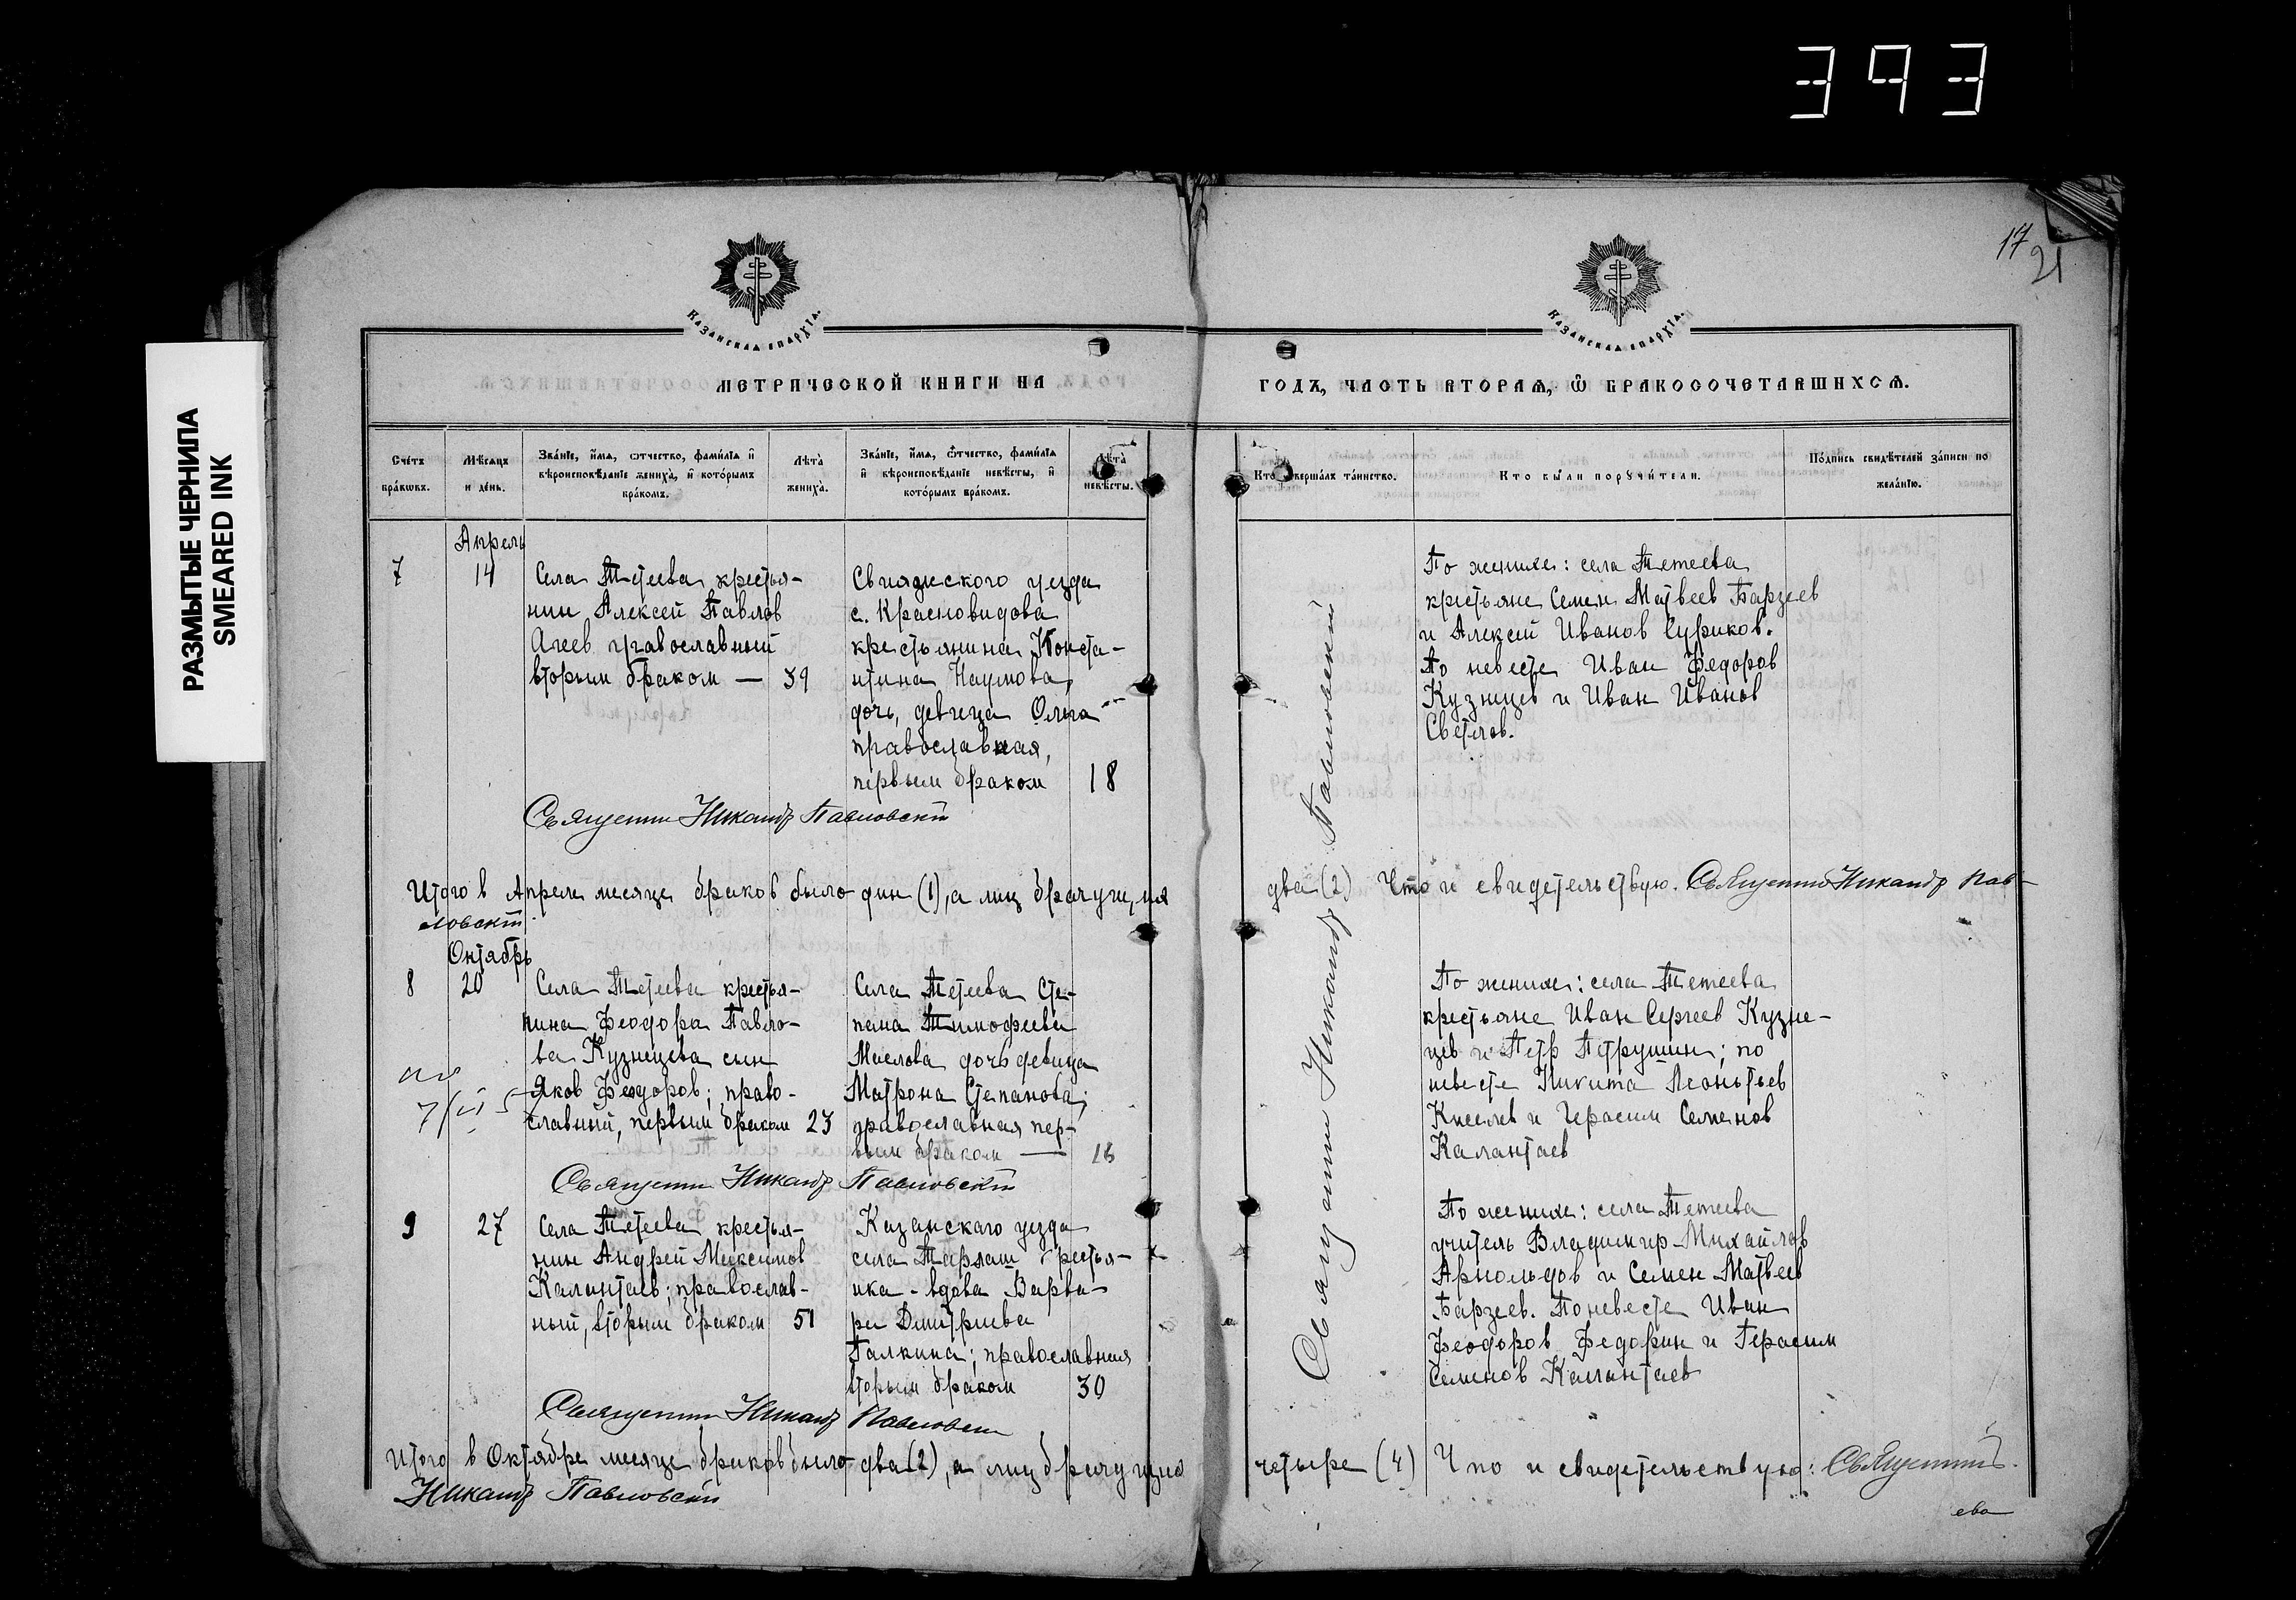 393
РАЗМЫТЫЕ ЧЕРНИЛА
SMEARED INK
17
21
КАЗАНСКАЯ ЕПАРХІА.
КАЗАНСКАЯ ЕПАРХІА.
МЕТРИЧЕСКОЙ КНИГИ НА
ГОДЪ, ЧАСТЬ ВТОРАЯ, Ѽ БРАКОСОЧЕТАВШИХСѦ.
Счетъ
браковъ.
Мѣсяцъ
и день.
Званіе, имя, отчество, фамилія и
вѣроисповѣданіе жениха, и которымъ
бракомъ.
Лѣта
жениха.
Званіе, имя, отчество, фамилія
и вѣроисповѣданіе невѣсты, и
которымъ бракомъ.
Лѣта
невѣсты.
Кто совершалъ таинство.
Кто были поручители.
Подпись свидѣтелей записи по
желанію.
Апрель
7
14
Села Тетеева крестья-
нин Алексей Павлов
Агеев православный
вторым браком — 39
Свияжского уезда
с. Красновидова
крестьянина Конста-
нтина Наумова,
дочь, девица Ольга
православная,
первым браком 18
Священник Никандр Павловскій
По женихе: села Тетеева
крестьяне Семен Матвеев Барзеев
и Алексей Иванов Суриков.
По невесте Иван Федоров
Кузнецев и Иван Иванов
Светлов.
Священник Никандр Павловский
Итого в Апреле месяце браков было один (1), а лиц брачущихся
два (2) Что и свидетельствую. Священник Никандр Пав-
ловскій
Октябрь
8
20
Села Тетеева крестья-
нина Феодора Павло-
ва Кузнецева сын
Яков Феодоров; право-
славный, первым браком 23
Села Тетеева Сте-
пана Тимофеева
Маслова дочь девица
Матрона Степанова;
православная пер-
вым браком — 18
Священник Никандр Павловскій
По женихе: села Тетеева
крестьяне Иван Сергеев Кузне-
цев и Петр Петрушин; по
невесте Никита Леонтьев
Киселев и Герасим Семенов
Калантаев
9
27
Села Тетеева крестья-
нин Андрей Максимов
Калантаев; православ-
ный, вторым браком 51
Казанскаго уезда
села Тарлаш, крестья-
нка - вдова Варва-
ра Дмитриева
Галкина; православная
вторым браком 30
Священник Никандр Павловскій
По женихе: села Тетеева
учитель Владимир Михайлов
Арнольдов и Семен Матвеев
Барзеев. По невесте Иван
Феодоров Федорин и Герасим
Семенов Калантаев
Итого в Октябре месяце браков было два (2), а лиц брачущихся
четыре (4) Что и свидетельствую: Священник
Никандр Павловскій
ева